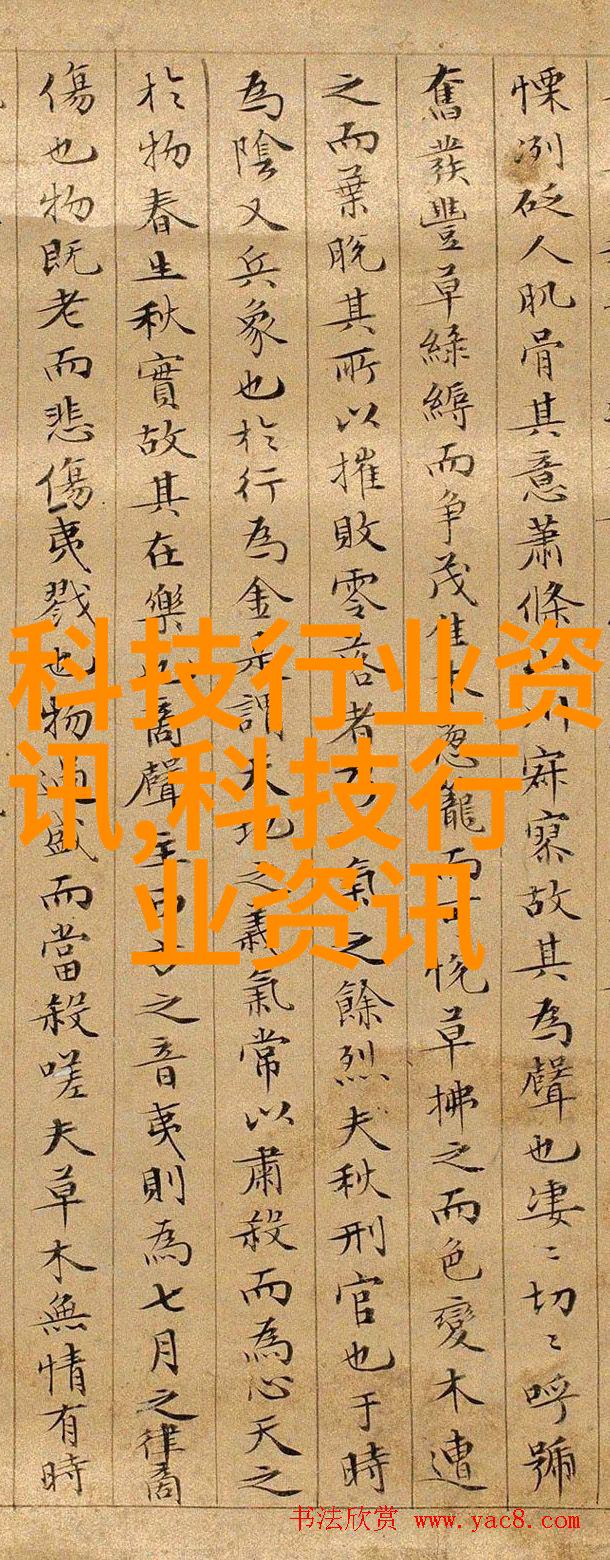 慄冽砭人肌骨其意蕭條山川寂寥故其為聲也凄〻切〻呼號
奮發豐草綠縟而争茂佳木葱籠而可悅草拂之而色變木遭
之而葉脫其所以摧敗零落者乃一氣之餘烈夫秋刑官也于時
為陰又兵象也於行為金是謂天地之義氣常以肅殺而為心天之
於物春生秋實故其在樂也商聲主西方之音夷則為七月之律商
傷也物既老而悲傷夷戮也物過盛而當殺嗟夫草木無情有時
科技行业资
讯,科技行
业资讯
书法欣赏 www.yac8.com